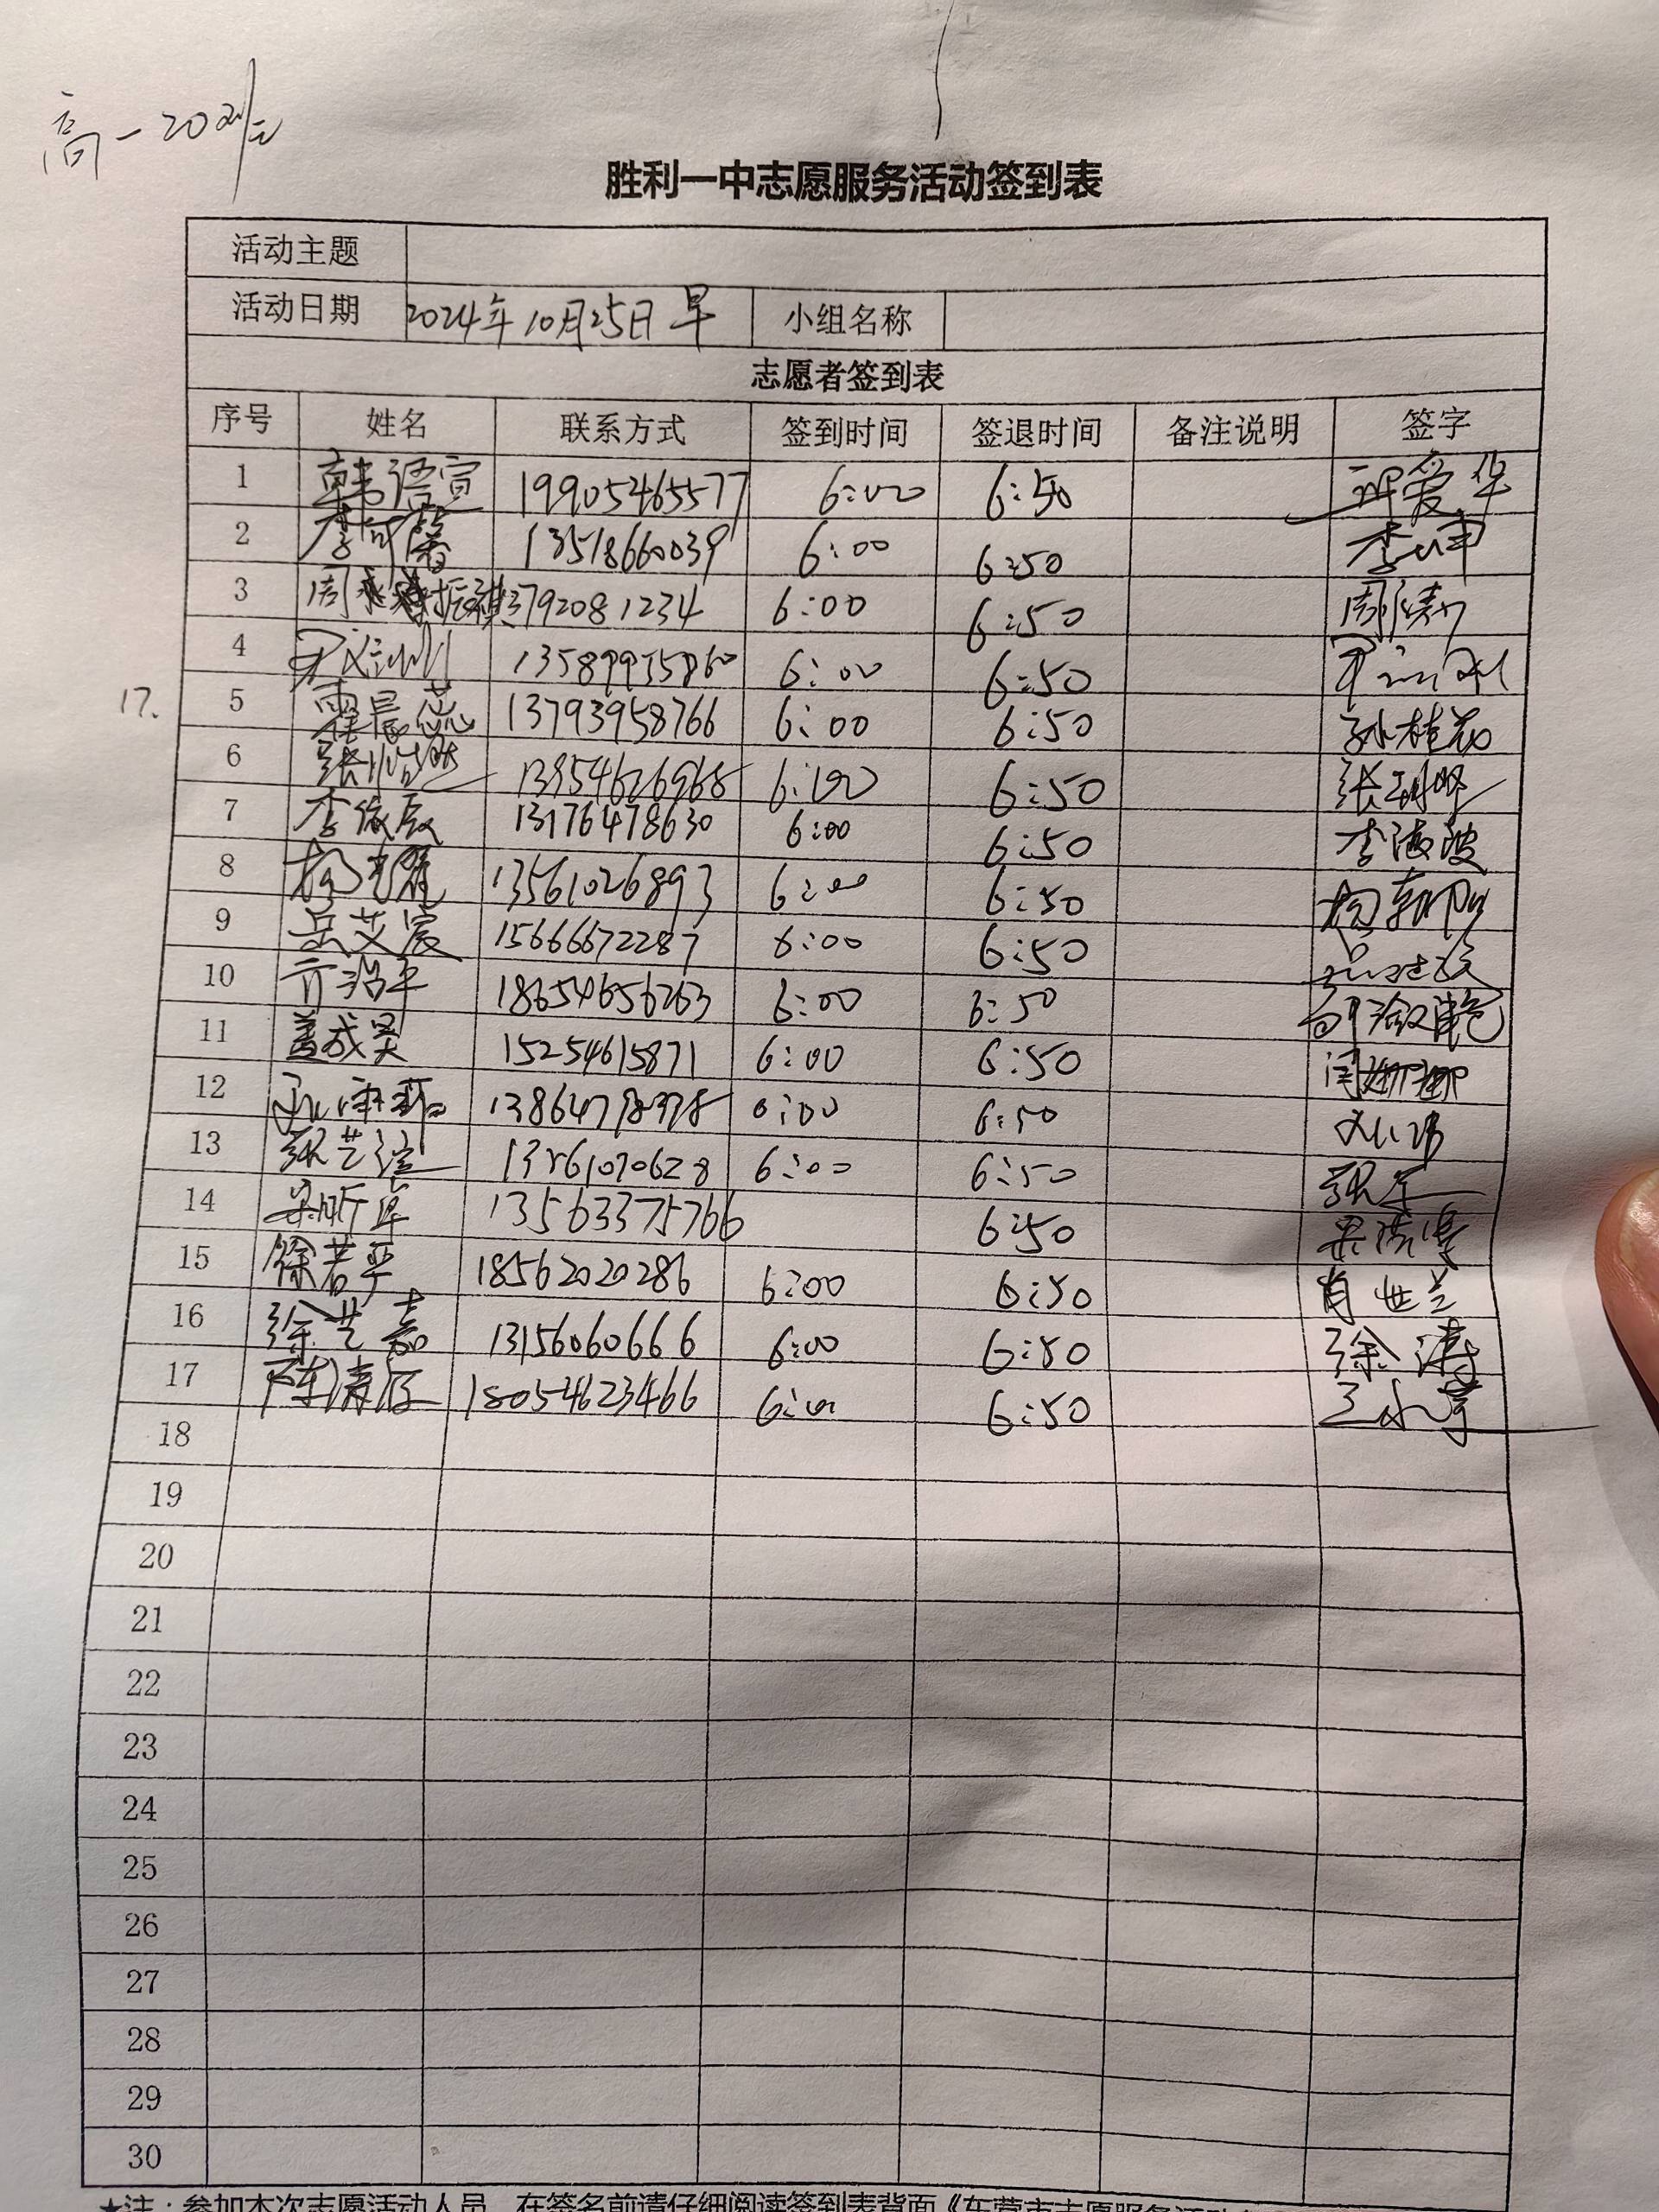 高一20
胜利一中志愿服务活动签到表
活动主题
活动日期 2024年10月25日 早 小组名称
志愿者签到表
序号 姓名 联系方式 签到时间 签退时间 备注说明 签字
1 韩语宣 19905465577 6:00 6:50 许爱华
2 李可馨 13518660039 6:00 6:50 李坤
3 周振祺 3792081234 6:00 6:50 周涛
4 6:00 6:50
17.
5 霍晨蕊 13793958766 6:00 6:50 孙桂花
6 张 13954626968 6:00 6:50 张
7 李依辰 13176478630 6:00 6:50 李海波
8 杨光耀 13561026893 6:00 6:50 杨朝阳
9 岳艾宸 15666672287 6:00 6:50
10 亓浩平 18654656263 6:00 6:50
11 盖成昊 15254615871 6:00 6:50 闫娜娜
12 6:00 6:50
13 张艺 6:00 6:50 张
14 梁昕 13563375766 6:50 梁
15 徐若平 18562020286 6:00 6:50 肖世兰
16 徐艺嘉 13156060666 6:00 6:50 徐涛
17 陈清源 18054623466 6:00 6:50 王
18
19
20
21
22
23
24
25
26
27
28
29
30
★注：参加本次志愿活动人员，在签名前请仔细阅读签到表背面《东营市志愿服务活动